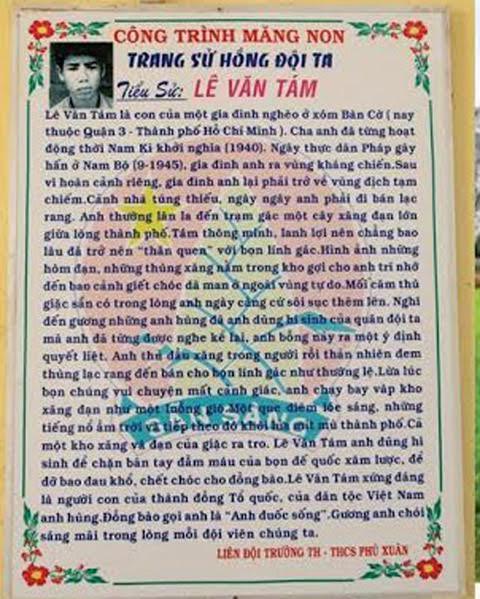 CÔNG TRÌNH MĂNG NON
TRANG SỬ HỒNG ĐỘI TA
Tiểu Sử: LÊ VĂN TÁM
Lê Văn Tám là con của một gia đình nghèo ở xóm Bàn Cờ ( nay
thuộc Quận 3 - Thành phố Hồ Chí Minh ). Cha anh đã từng hoạt
động thời Nam Kì khởi nghĩa (1940). Ngày thực dân Pháp gây
hấn ở Nam Bộ (9-1945), gia đình anh ra vùng kháng chiến.Sau
vì hoàn cảnh riêng, gia đình anh lại phải trở về vùng địch tạm
chiếm.Cảnh nhà túng thiếu, ngày ngày anh phải đi bán lạc
rang. Anh thường lân la đến trạm gác một cây xăng đạn lớn
giữa lòng thành phố.Tám thông minh, lanh lợi nên chẳng bao
lâu đã trở nên "thân quen" với bọn lính gác.Hình ảnh những
hòm đạn, những thùng xăng nằm trong kho gợi cho anh trí nhớ
đến bao cảnh giết chóc dã man ở ngoài vùng tự do.Mối căm thù
giặc sẵn có trong lòng anh ngày càng cứ sôi sục thêm lên. Nghĩ
đến gương những anh hùng đã anh dũng hi sinh của quân đội ta
mà anh đã từng được nghe kể lại, anh bỗng nảy ra một ý định
quyết liệt. Anh thủ dầu xăng trong người rồi thản nhiên đem
thùng lạc rang đến bán cho bọn lính gác như thường lệ.Lừa lúc
bọn chúng vui chuyện mất cảnh giác, anh chạy bay vào kho
xăng đạn như một luồng gió.Một que diêm lóe sáng, những
tiếng nổ ầm trời và tiếp theo đó khói lửa mịt mù thành phố.Cả
một kho xăng và đạn của giặc ra tro. Lê Văn Tám anh dũng hi
sinh để chặn bàn tay đẫm máu của bọn đế quốc xâm lược, để
đỡ bao đau khổ, chết chóc cho đồng bào.Lê Văn Tám xứng đáng
là người con của thành đồng Tổ quốc, của dân tộc Việt Nam
anh hùng.Đồng bào gọi anh là "Anh đuốc sống".Gương anh chói
sáng mãi trong lòng mỗi đội viên chúng ta.
LIÊN ĐỘI TRƯỜNG TH - THCS PHÚ XUÂN